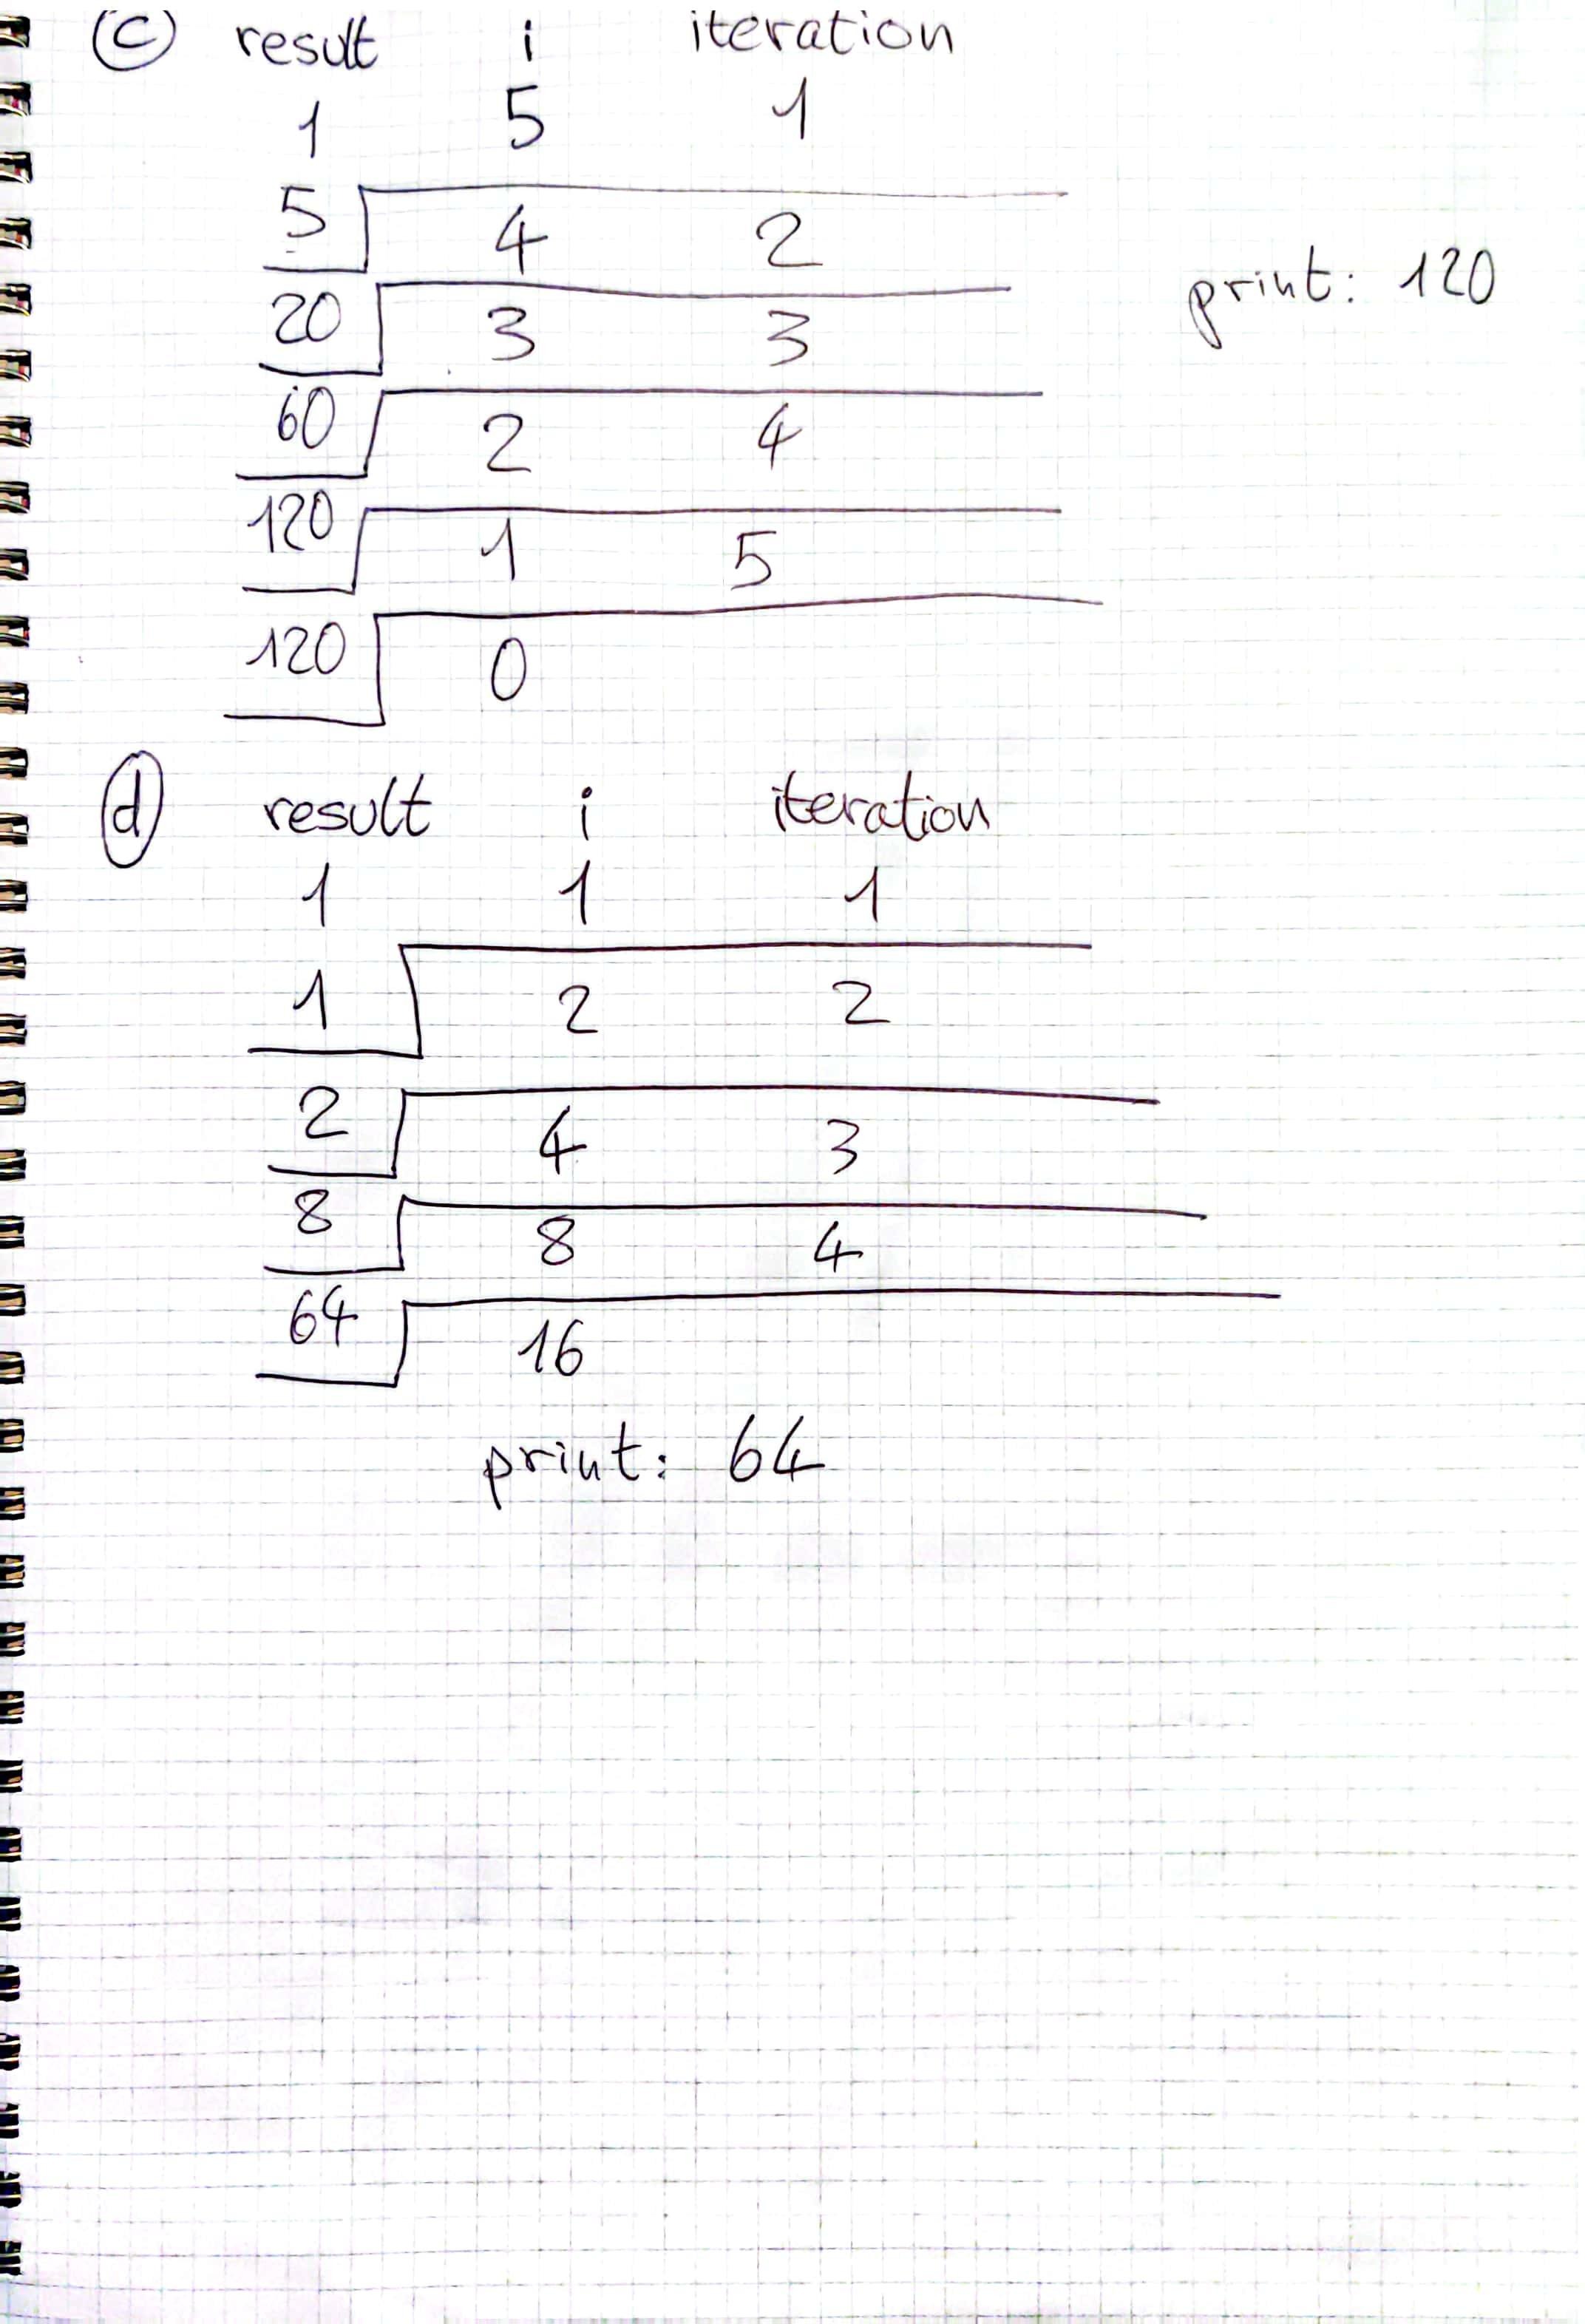 (c) result i iteration
1 5 1
5 4 2
print: 120
20 3 3
60 2 4
120 1 5
120 0
(d) result i iteration
1 1 1
1 2 2
2 4 3
8 8 4
64 16
print: 64